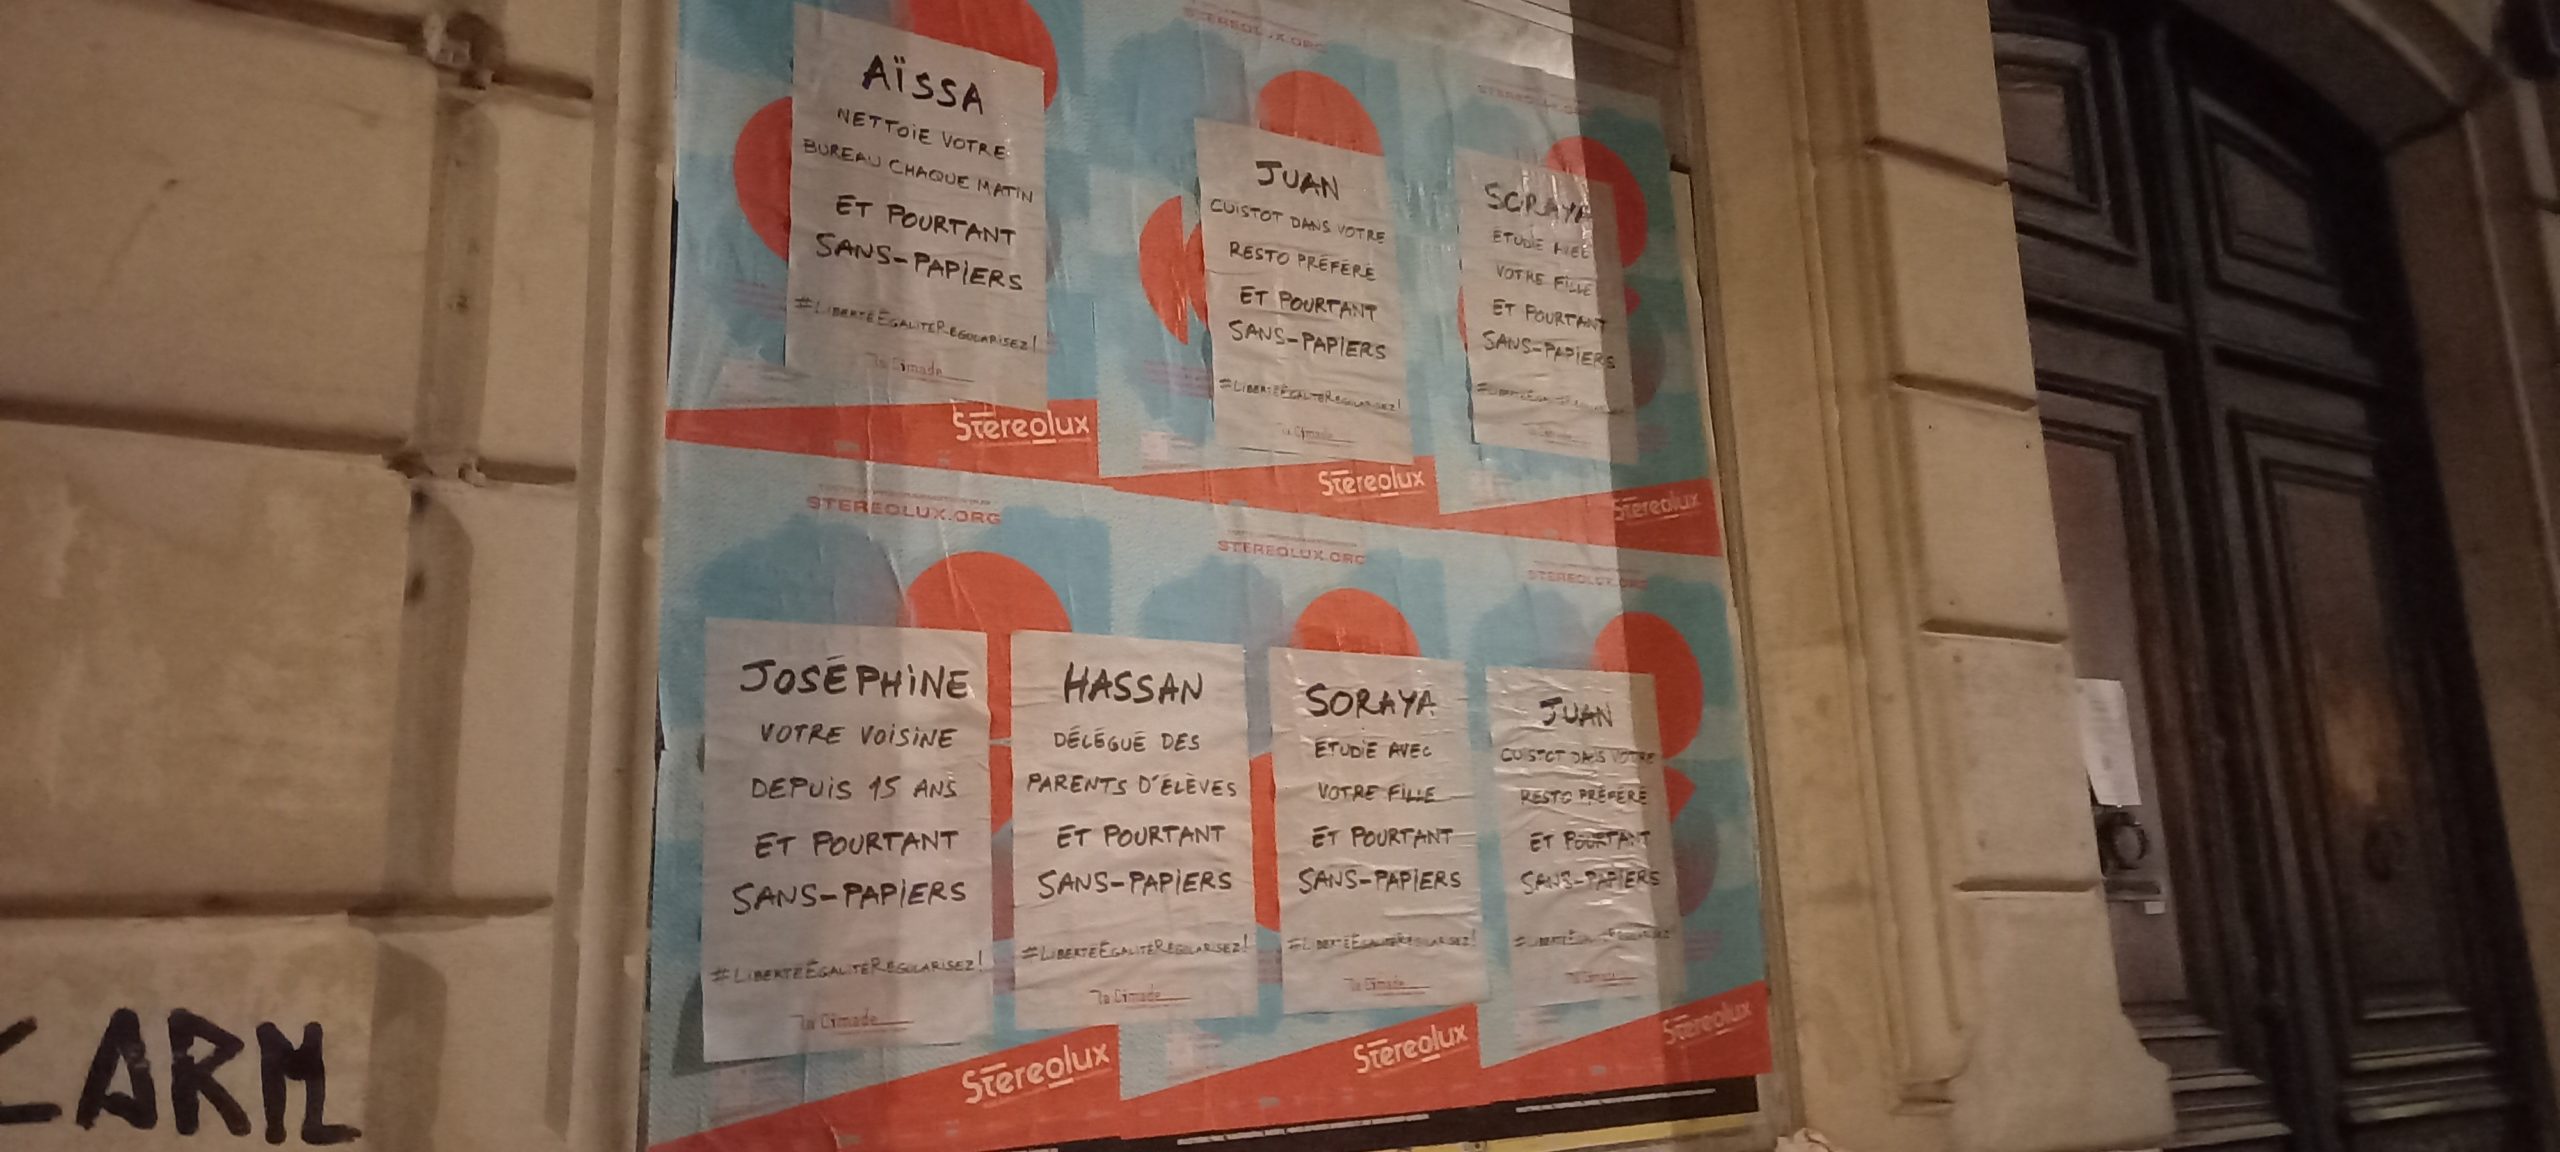 AÏSSA
NETTOIE VOTRE
BUREAU CHAQUE MATIN
ET POURTANT
SANS-PAPIERS
#LIBERTÉEGALITÉREGULARISEZ!
La Cimade
Stereolux
STEREOLUX.ORG
JUAN
CUISTOT DANS VOTRE
RESTO PRÉFÉRÉ
ET POURTANT
SANS-PAPIERS
#LIBERTÉEGALITÉREGULARISEZ!
la Cimade
Stereolux
STEREOLUX.ORG
SORAYA
ÉTUDIE AVEC
VOTRE FILLE
ET POURTANT
SANS-PAPIERS
#LIBERTÉEGALITÉREGULARISEZ!
la Cimade
Stereolux
STEREOLUX.ORG
JOSÉPHINE
VOTRE VOISINE
DEPUIS 15 ANS
ET POURTANT
SANS-PAPIERS
#LIBERTÉEGALITÉREGULARISEZ!
la Cimade
Stereolux
STEREOLUX.ORG
HASSAN
DÉLÉGUÉ DES
PARENTS D'ÉLÈVES
ET POURTANT
SANS-PAPIERS
#LIBERTÉEGALITÉREGULARISEZ!
la Cimade
SORAYA
ÉTUDIE AVEC
VOTRE FILLE
ET POURTANT
SANS-PAPIERS
#LIBERTÉEGALITÉREGULARISEZ!
la Cimade
Stereolux
STEREOLUX.ORG
JUAN
CUISTOT DANS VOTRE
RESTO PRÉFÉRÉ
ET POURTANT
SANS-PAPIERS
#LIBERTÉEGALITÉREGULARISEZ!
la Cimade
Stereolux